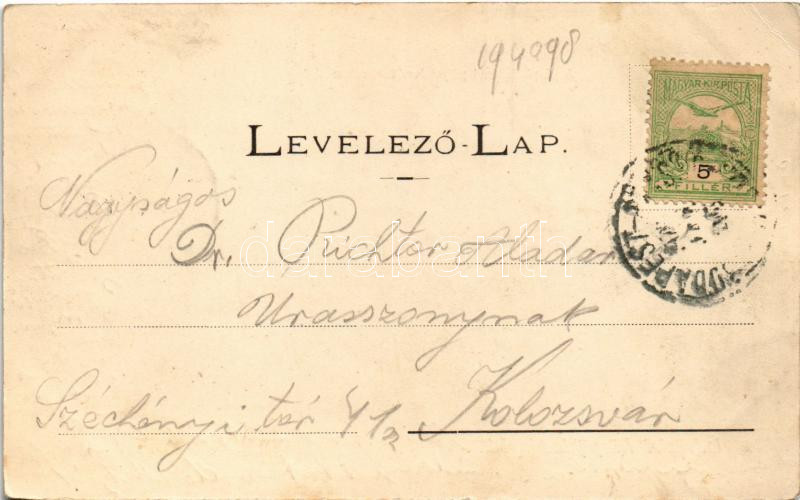 194098
LEVELEZŐ-LAP.
MAGYAR KIR. POSTA
5
FILLÉR
BUDAPEST
Nagyságos
Dr. Richter Aladár
Urasszonynak
Széchényi tér
Kolozsvár
darabanth